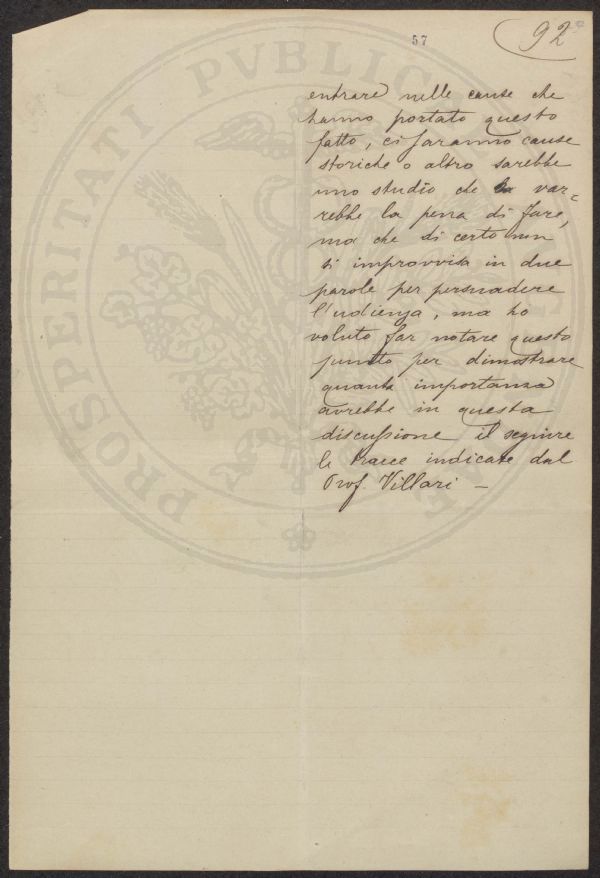 57
92
entrare nelle cause che
hanno portato questo
fatto, ci saranno cause
storiche o altro sarebbe
uno studio che var=
rebbe la pena di fare,
ma che di certo non
si improvvisa in due
parole per persuadere
l'udienza, ma ho
voluto far notare questo
punto per dimostrare
quanta importanza
avrebbe in questa
discussione il seguire
le tracce indicate dal
Prof. Villari —
PROSPERITATI PVBLICAE